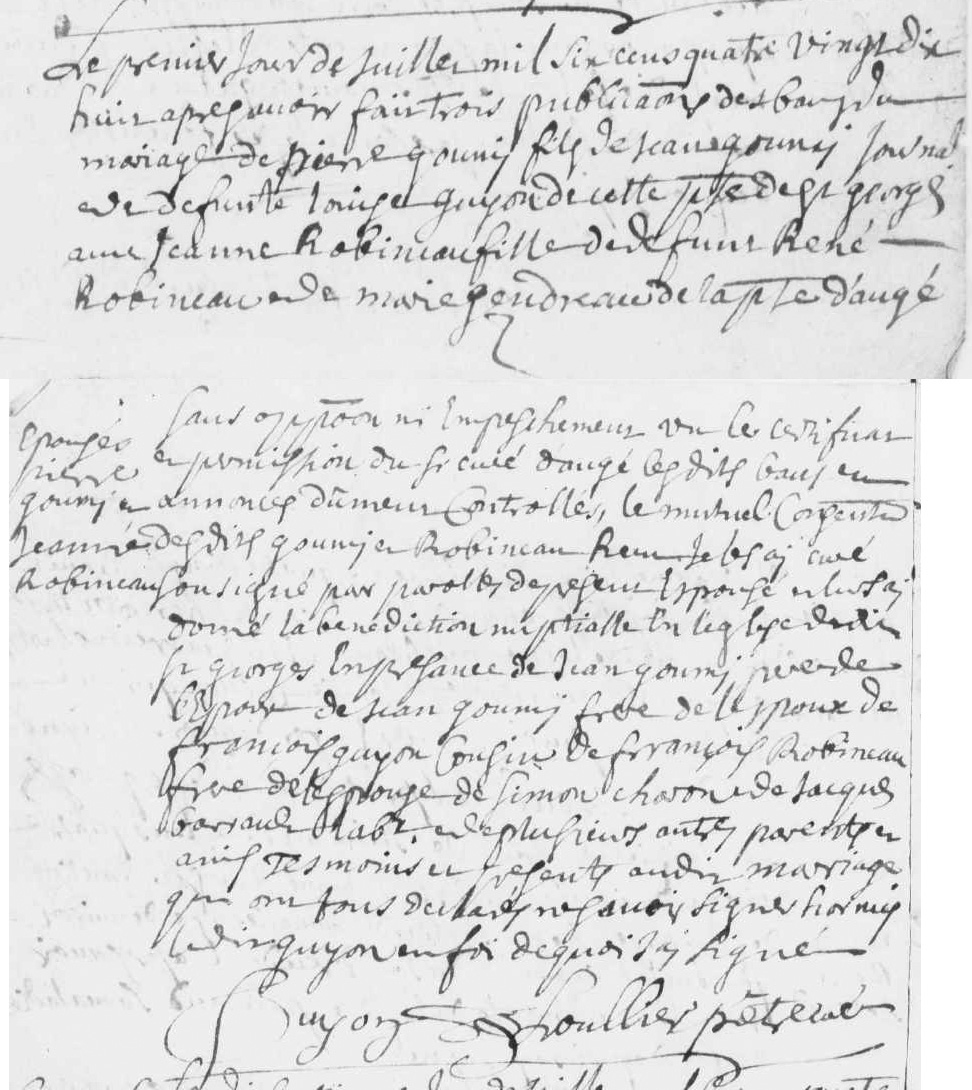 Le premier Jour de Juillet mil six cens quatre vingt dix
huit apres avoir fait trois publicaõns des bans du
mariage de pierre goumij fils de jean goumij Journal
et de defunte louise guyon de cette psse de St georges
avec Jeanne Robineau fille de defunt René
Robineau et de marie gendreau de la psse d'augé
sans oppõon ni Empeschement vu le certificat
et permission du sr curé d'augé lesdits bans et
annonces dûment Controllés, le mutuel Consentem
desdits goumij et Robineau Receu Je les ai curé
sousigné par parolles de present Espousé et leur ai
donné la benediction nuptialle En l'eglise dudit
st georges En presance de jean goumij pere de
l'Espoux de jean goumij frere de l'Espoux de
francois guyon Cousin de francois Robineau
frere de l'Espouse de simon charon et de Jacques
barraud et de plusieurs autres parents et
amis Tesmoins et presents audit mariage
qui ont tous declarés ne savoir signer hormis
ledit guyon en foi de quoi J'ai signé
Guyon prêtre curé
Epousés
pierre
goumij et
Jeanne
Robineau